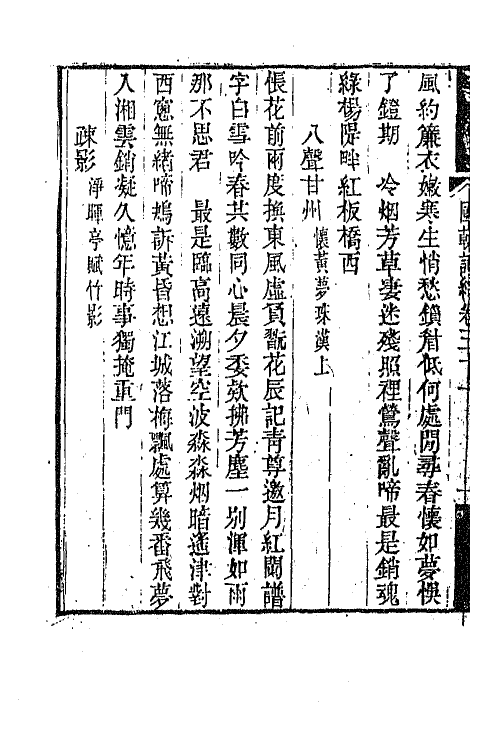 國朝詞綜卷三十
風約簾衣嫩寒生悄愁鎖眉低何處閒尋春懷如夢悞
了鐙期　冷烟芳草凄迷殘照裡鶯聲亂啼最是銷魂
綠楊隄畔紅板橋西
八聲甘州　懷黃夢珠漢上
悵花前兩度換東風虛負翫花辰記靑尊邀月紅闌譜
字白雪吟春共數同心晨夕委欬拂芳塵一別渾如雨
那不思君　最是臨高遠溯望空波淼淼烟暗遙津對
西窗無緒啼鴂訴黃昏想江城落梅飄處算幾番飛夢
入湘雲銷凝久憶年時事獨掩重門
疎影　淨暉亭賦竹影